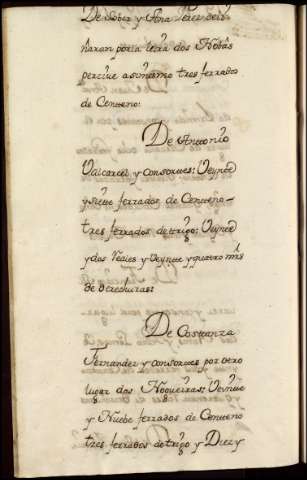 De Sober y Ana Perez deli
naron por la leira dos Hobas
percive asimismo tres ferrados
de Centeno:
De Antonio
Valcarcel y consortes: Veynte
y siete ferrados de Centeno-
tres ferrados de trigo: Veynte
y dos Reales y Veynte y quatro mrs
de derechuras:
De Costanza
Fernandez y consortes por otro
lugar dos Nogueiras: Veinte
y Nuebe ferrados de Centeno
tres ferrados de trigo y Diez y